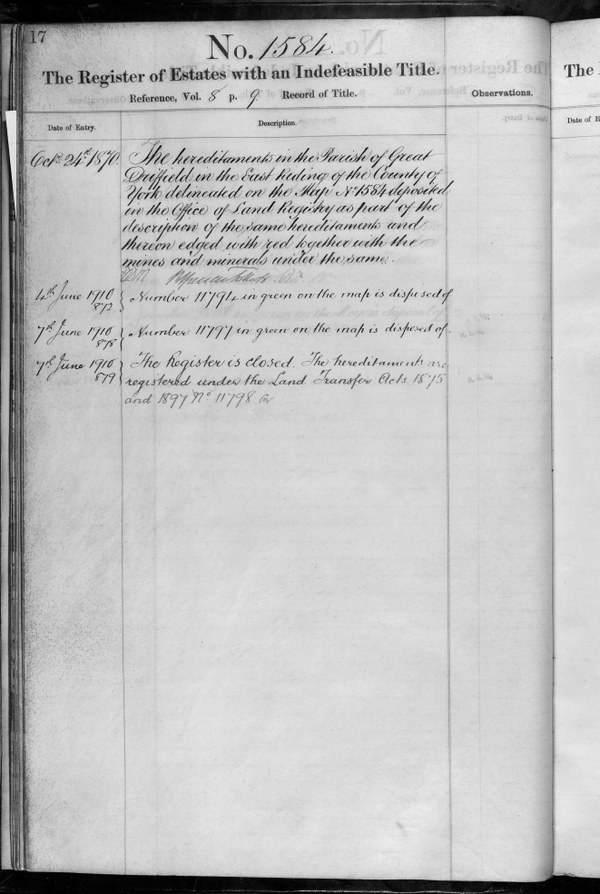 17
No. 1584.
The Register of Estates with an Indefeasible Title.
Reference, Vol. 8 p. 9 Record of Title.
Observations.
Date of Entry.
Description.
Octr. 24th 1870.
The hereditaments in the Parish of Great
Driffield in the East Riding of the County of
York delineated on the Map No 1584 deposited
in the Office of Land Registry as part of the
description of the same hereditaments and
thereon edged with red together with the
mines and minerals under the same.
4th June 1910
872
Number 11794 in green on the map is disposed of
7th June 1910
878
Number 11797 in green on the map is disposed of.
7th June 1910
879
The Register is closed. The hereditaments are
registered under the Land Transfer Acts 1875
and 1897 No 11798
The
Date of E